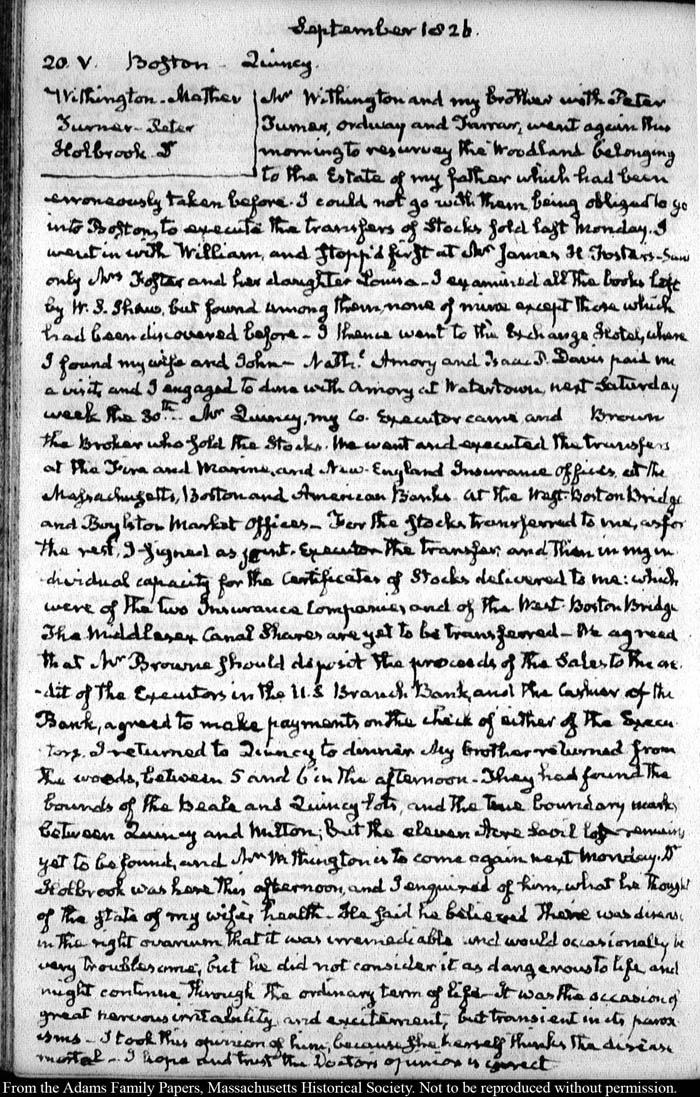 September 1826.
20. V. Boston - Quincy.
Withington. Mather
Turner. Peter
Holbrook. Dr
Mr Withington and my brother with Peter
Turner, Ordway and Farrar, went again this
morning to resurvey the Woodland belonging
to the Estate of my father which had been
erroneously taken before. I could not go with them, being obliged to go
into Boston, to execute the transfers of Stocks sold last Monday. I
went in with William, and stopp'd first at Mr James H. Foster's - Saw
only Mrs Foster and her daughter Louisa - I examined all the books left
by W. S. Shaw, but found among them, none of mine except those which
had been discovered before - I thence went to the Exchange Hotel, where
I found my wife and John - Nathl. Amory and Isaac P. Davis paid me
a visit, and I engaged to dine with Amory at Watertown, next Saturday
week the 30th. Mr Quincy, my Co. Executor came and Brown
the Broker who sold the Stocks. We went and executed the transfers
at the Fire and Marine, and New-England Insurance offices, at the
Massachusetts, Boston and American Banks - at the West-Boston Bridge
and Boylston Market Offices - For the stocks transferred to me, as for
the rest, I signed as joint-Executor the transfer, and then in my in
dividual capacity for the Certificates of Stocks delivered to me: which
were of the two Insurance Companies, and of the West-Boston Bridge
The Middlesex Canal Shares are yet to be transferred - We agreed
that Mr Browne should deposit the proceeds of the Sales to the cre
-dit of the Executors in the U.S. Branch Bank, and the Cashier of the
Bank, agreed to make payments on the check of either of the Execu
tors. I returned to Quincy to dinner. My brother returned from
the woods, between 5 and 6 in the afternoon - They had found the
bounds of the Beale and Quincy lots, and the true boundary marks
between Quincy and Milton; but the eleven Acre Savil lot remains
yet to be found, and Mr Withington is to come again next Monday. Dr
Holbrook was here this afternoon, and I enquired of him, what he thought
of the state of my wife's health - He said he believed there was disease
in the right ovarium, that it was irremediable and would occasionally be
very troublesome; but he did not consider it as dangerous to life, and
might continue through the ordinary term of life - It was the occasion of
great nervous irritability and excitement, but transient in its parox
isms - I took this opinion of him, because she herself thinks the disease
mortal - I hope and trust the Doctor's opinion is correct
From the Adams Family Papers, Massachusetts Historical Society. Not to be reproduced without permission.